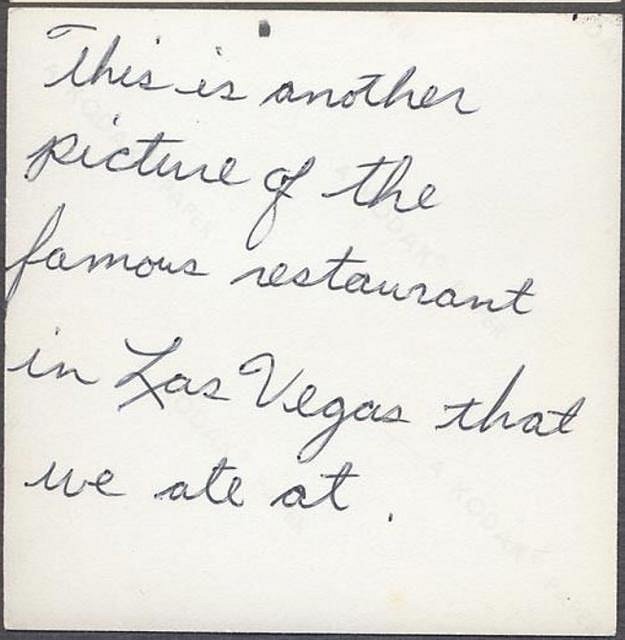 This is another
picture of the
famous restaurant
in Las Vegas that
we ate at.